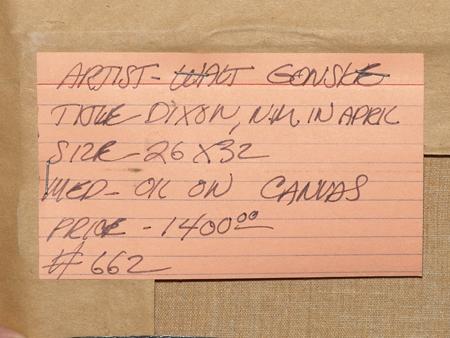 ARTIST- WALT GONSKE
TITLE DIXON, N.M. IN APRIL
SIZE- 26 X 32
MED- OIL ON CANVAS
PRICE - 1400.00
# 662